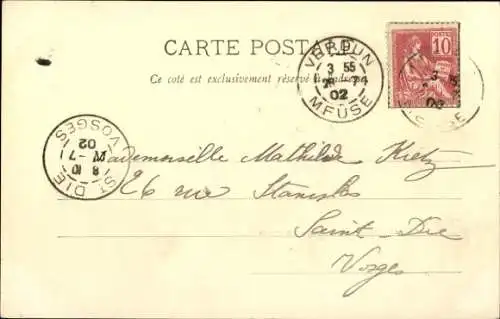 CARTE POSTALE
Ce côté est exclusivement réservé à l'adresse
VERDUN
3 55
02
MEUSE
10
3
02
MEUSE
ST DIE
8 10
7
02
VOSGES
Mademoiselle Mathilde Kretz
26 rue Stanislas
Saint-Die
Vosges